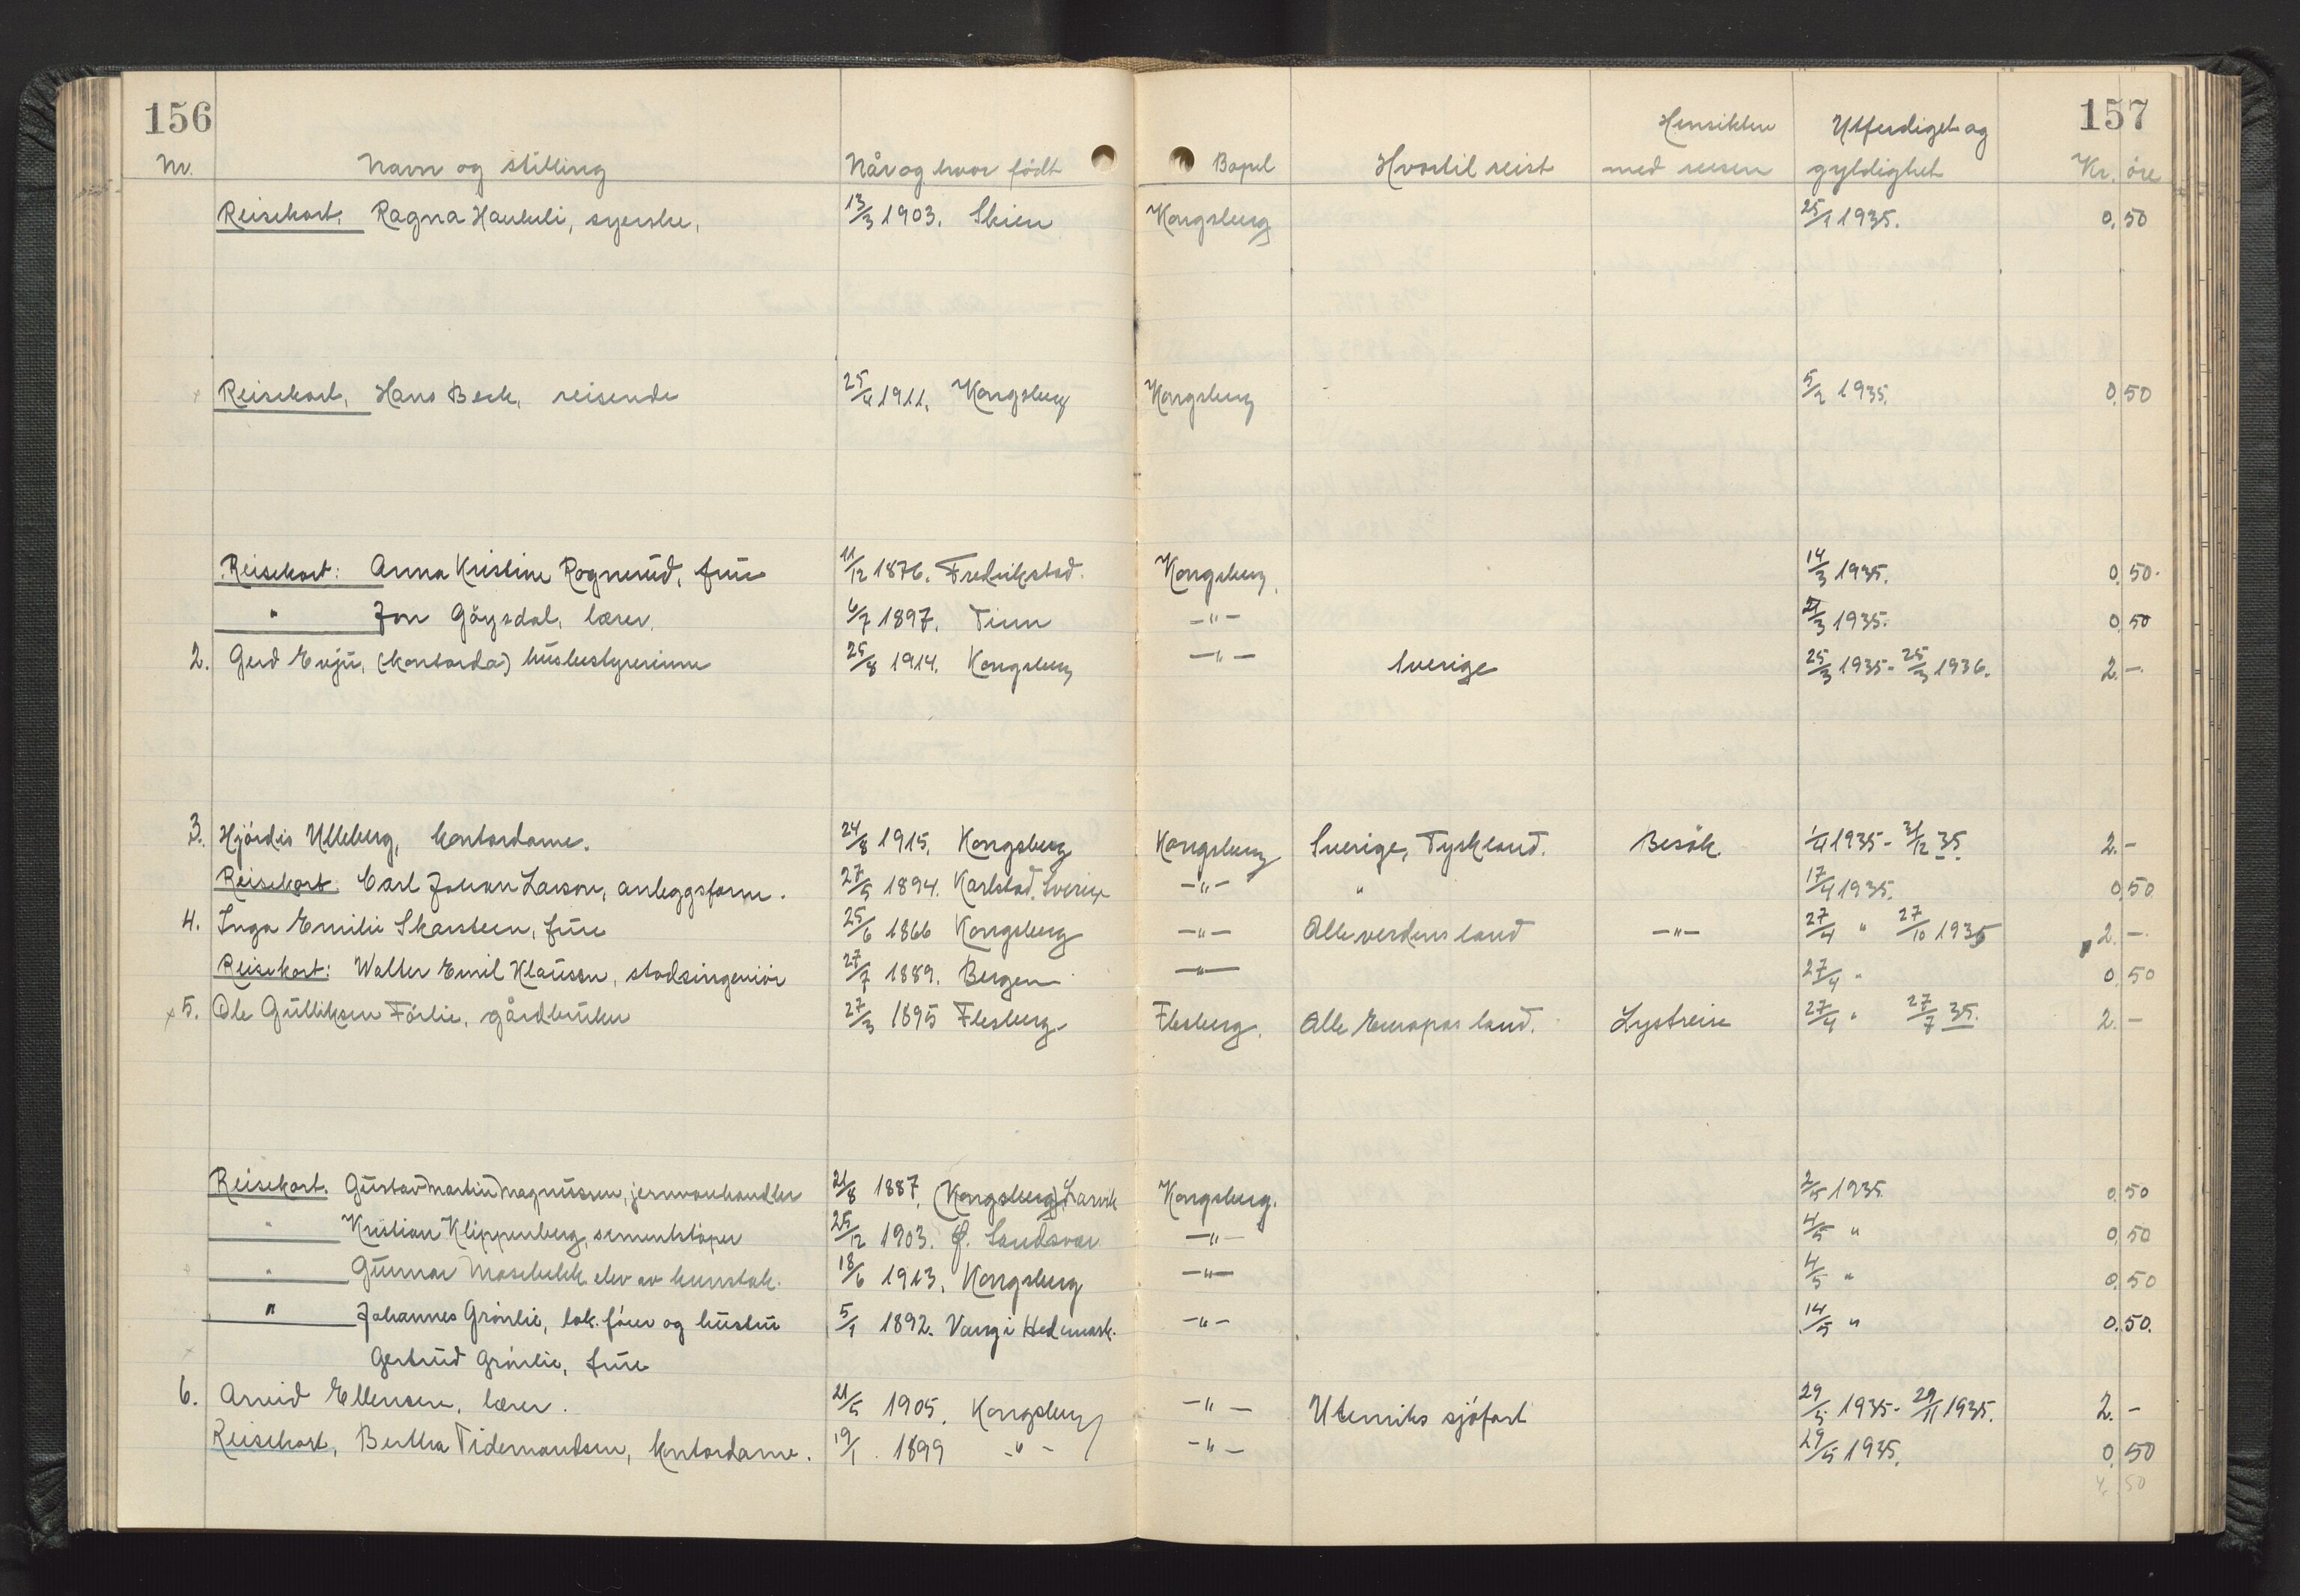 156 157
Hensikten Utferdiget og
Nr. Navn og stilling Når og hvor født Bopel Hvortil reist med reisen gyldighet Kr. øre
Reisekort, Ragna Haukeli, syerske, 13/3 1903. Skien Kongsberg 25/1 1935. 0,50
Reisekort, Hans Beck, reisende 25/4 1911. Kongsberg Kongsberg 5/2 1935. 0,50
Reisekort: Anna Kristine Rognerud, frue 11/12 1876. Fredrikstad. Kongsberg, 14/3 1935. 0,50
" Jon Göysdal, lærer. 6/7 1897. Tinn -"- 21/3 1935. 0,50
2. Gerd Evju, (kontorda) husbestyrerinne 25/8 1914. Kongsberg -"- Sverige 25/3 1935- 25/3 1936. 2.-
3. Hjördis Ulleberg, kontordame. 24/8 1915. Kongsberg Kongsberg Sverige, Tyskland. Besök. 1/4 1935- 31/12 35. 2.-
Reisekort. Carl Johan Larson, anleggsform. 27/5 1894. Karlstad. Sverige -"- " 17/4 1935. 0,50.
4. Inga Emilie Skarsteen, frue 25/6 1866 Kongsberg -"- Alle verdens land -"- 27/4 " 27/10 1935 2.-
Reisekort: Walter Emil Klausen, stadsingeniör 27/7 1889. Bergen -"- 27/4 " 0,50
x 5. Ole Gulliksen Förlie, gårdbruker 27/3 1895 Flesberg. Flesberg. Alle Europas land. Lystreise 27/4 " 27/7 35. 2.-
Reisekort. Gustav Martin Magnussen, jernvarehandler 21/8 1887. (Kongsberg) Larvik Kongsberg. 2/5 1935. 0,50
" Kristian Klippenberg, sementstöper 25/12 1903. Ø. Sandsvær -"- 4/5 " 0,50
" Gunnar elev av kunstak. 18/6 1913. Kongsberg -"- 4/5 " 0,50
" Johannes Grönlie, lok. förer og hustru 5/1 1892. Vang i Hedmark. -"- 14/5 " 0.50.
Gertrud Grönlie, frue
6. Arvid Ellensen, lærer. 21/5 1905. Kongsberg -"- Utenriks sjöfart 29/5 1935- 29/11 1935. 2.-
Reisekort, Bertha Tidemandsen, kontordame. 19/1 1899 -"- -"- 29/5 1935. 0,50
4. 50